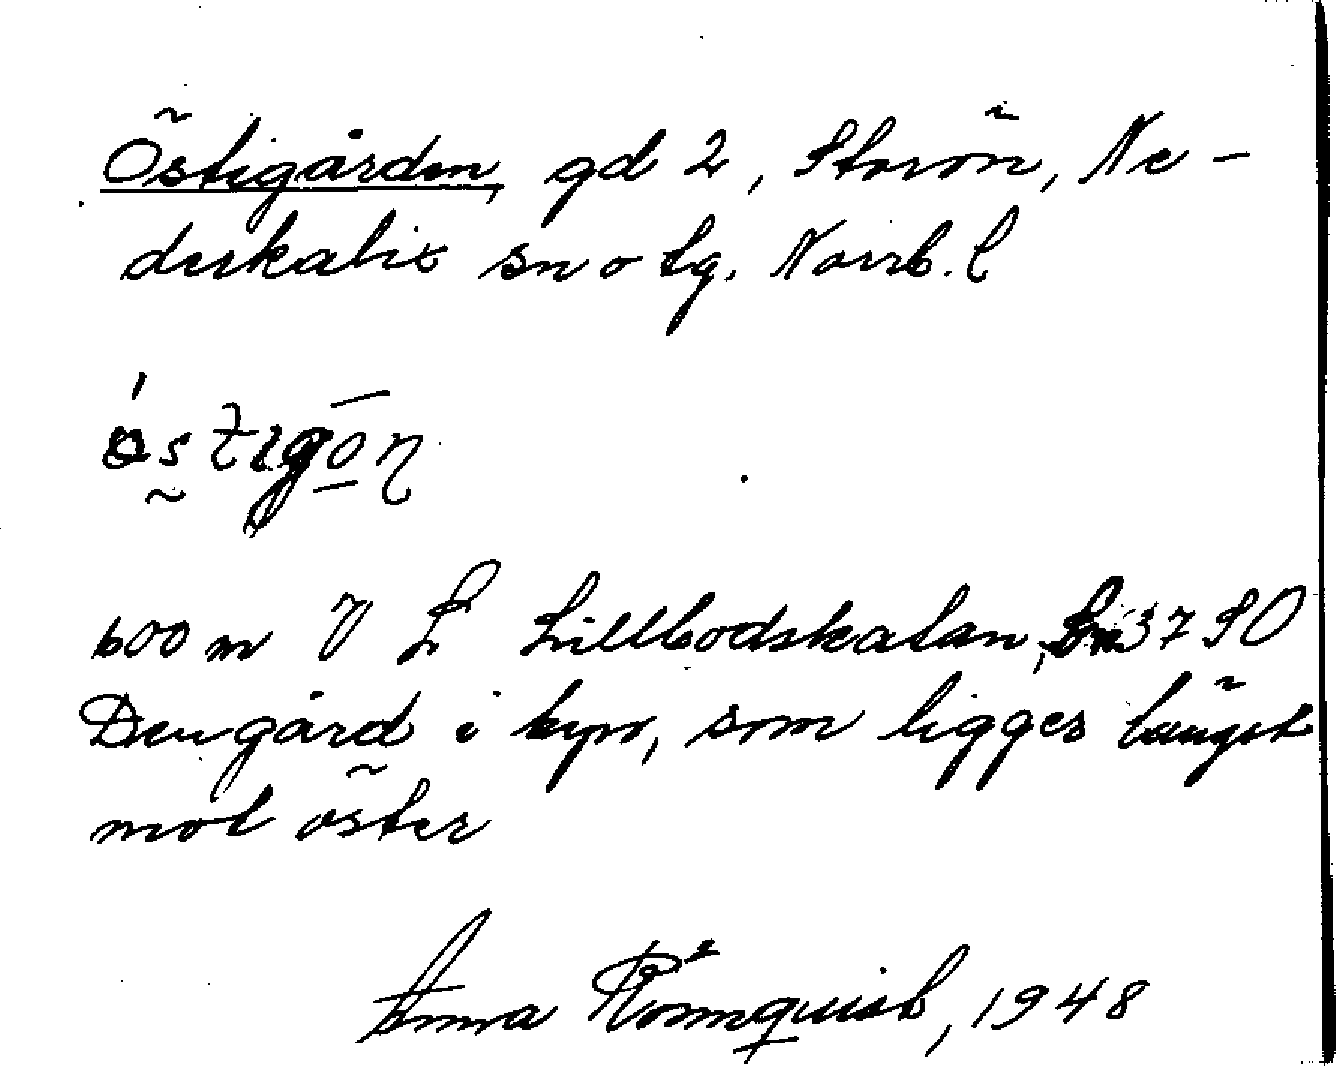 Östigården, gd 2, Storön, Ne-
derkalix sn o tg. Norrb. l
600 m V Lillbodskatan, 37 SO
Den gård i byn, som ligger längst
mot öster
Anna Rönnquist, 1948